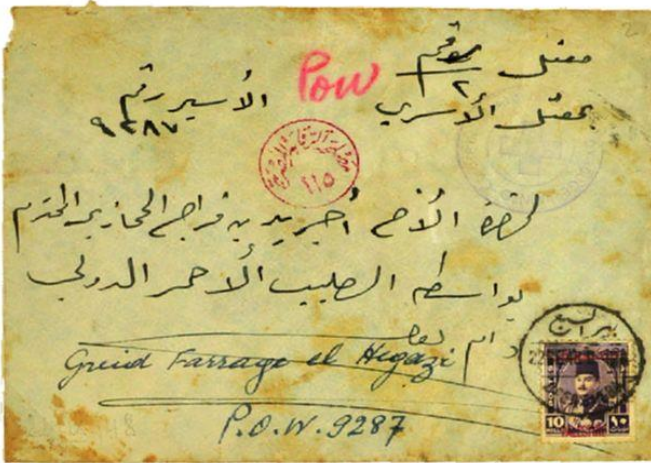 معتقل رقم
POW
٢
بمعتقل الأسرى الأسير رقم
٩٢٨٧
١١٥
لحضرة الأخ أجريد بن فراج الحجازي المحترم
بواسطة الصليب الأحمر الدولي
دام بقاه
Greid Farrage el Hegazi
P.O.W. 9287
10 ١٠